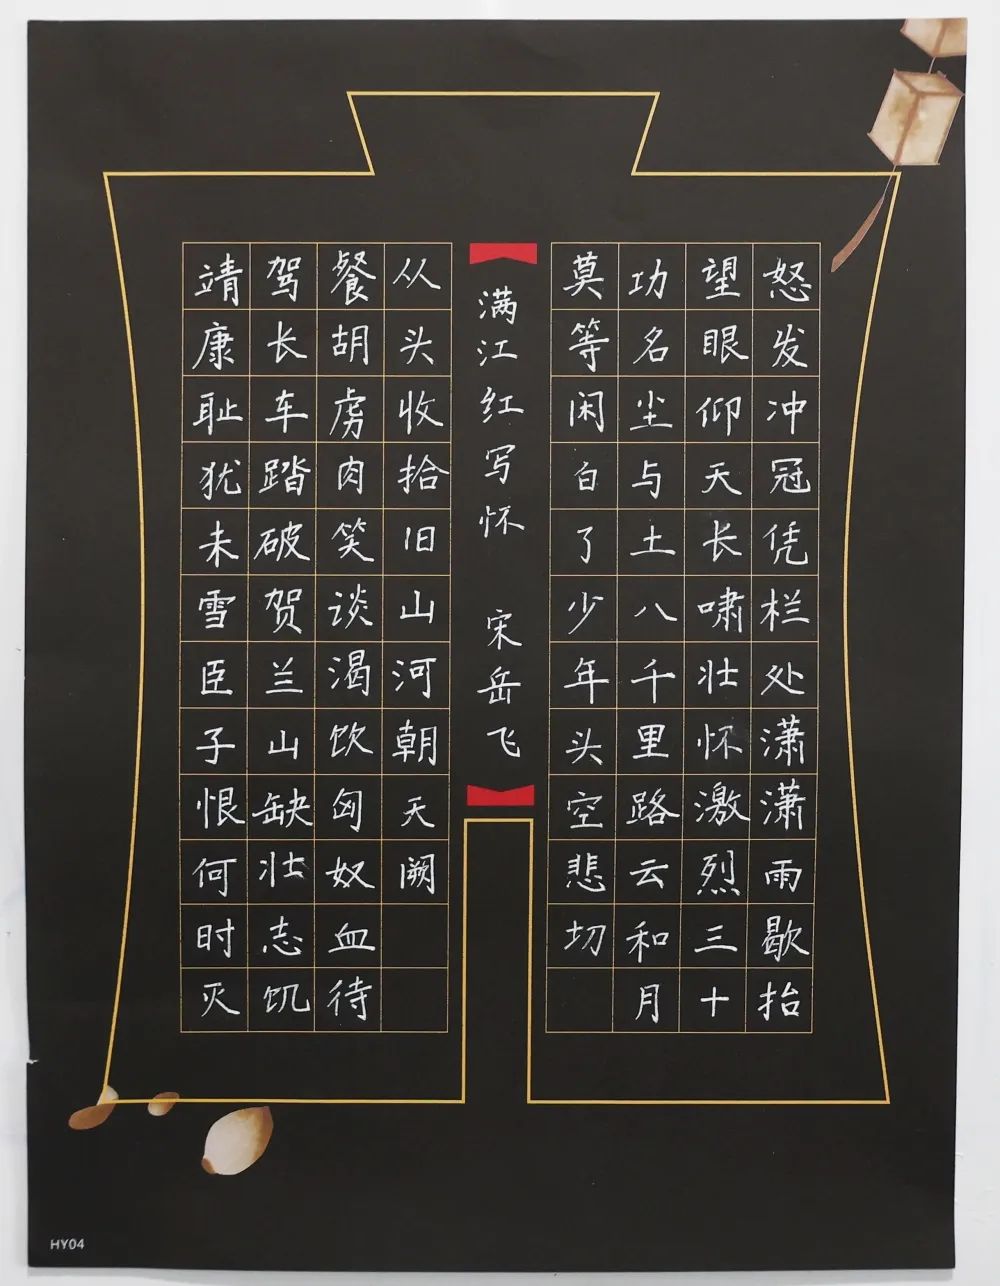 满江红写怀 宋岳飞
怒发冲冠凭栏处潇潇雨歇抬
望眼仰天长啸壮怀激烈三十
功名尘与土八千里路云和月
莫等闲白了少年头空悲切
靖康耻犹未雪臣子恨何时灭
驾长车踏破贺兰山缺壮志饥
餐胡虏肉笑谈渴饮匈奴血待
从头收拾旧山河朝天阙
HY04